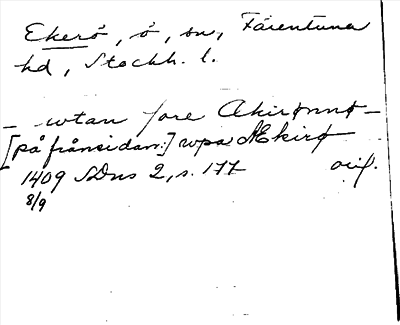 Ekerö, ö, sn, Färentuna
hd, Stockh. l.
– wtan fore Akirønnø –
[på frånsidan:] wpa Ækirø
1409 SDns 2, s. 177 orig.
8/9